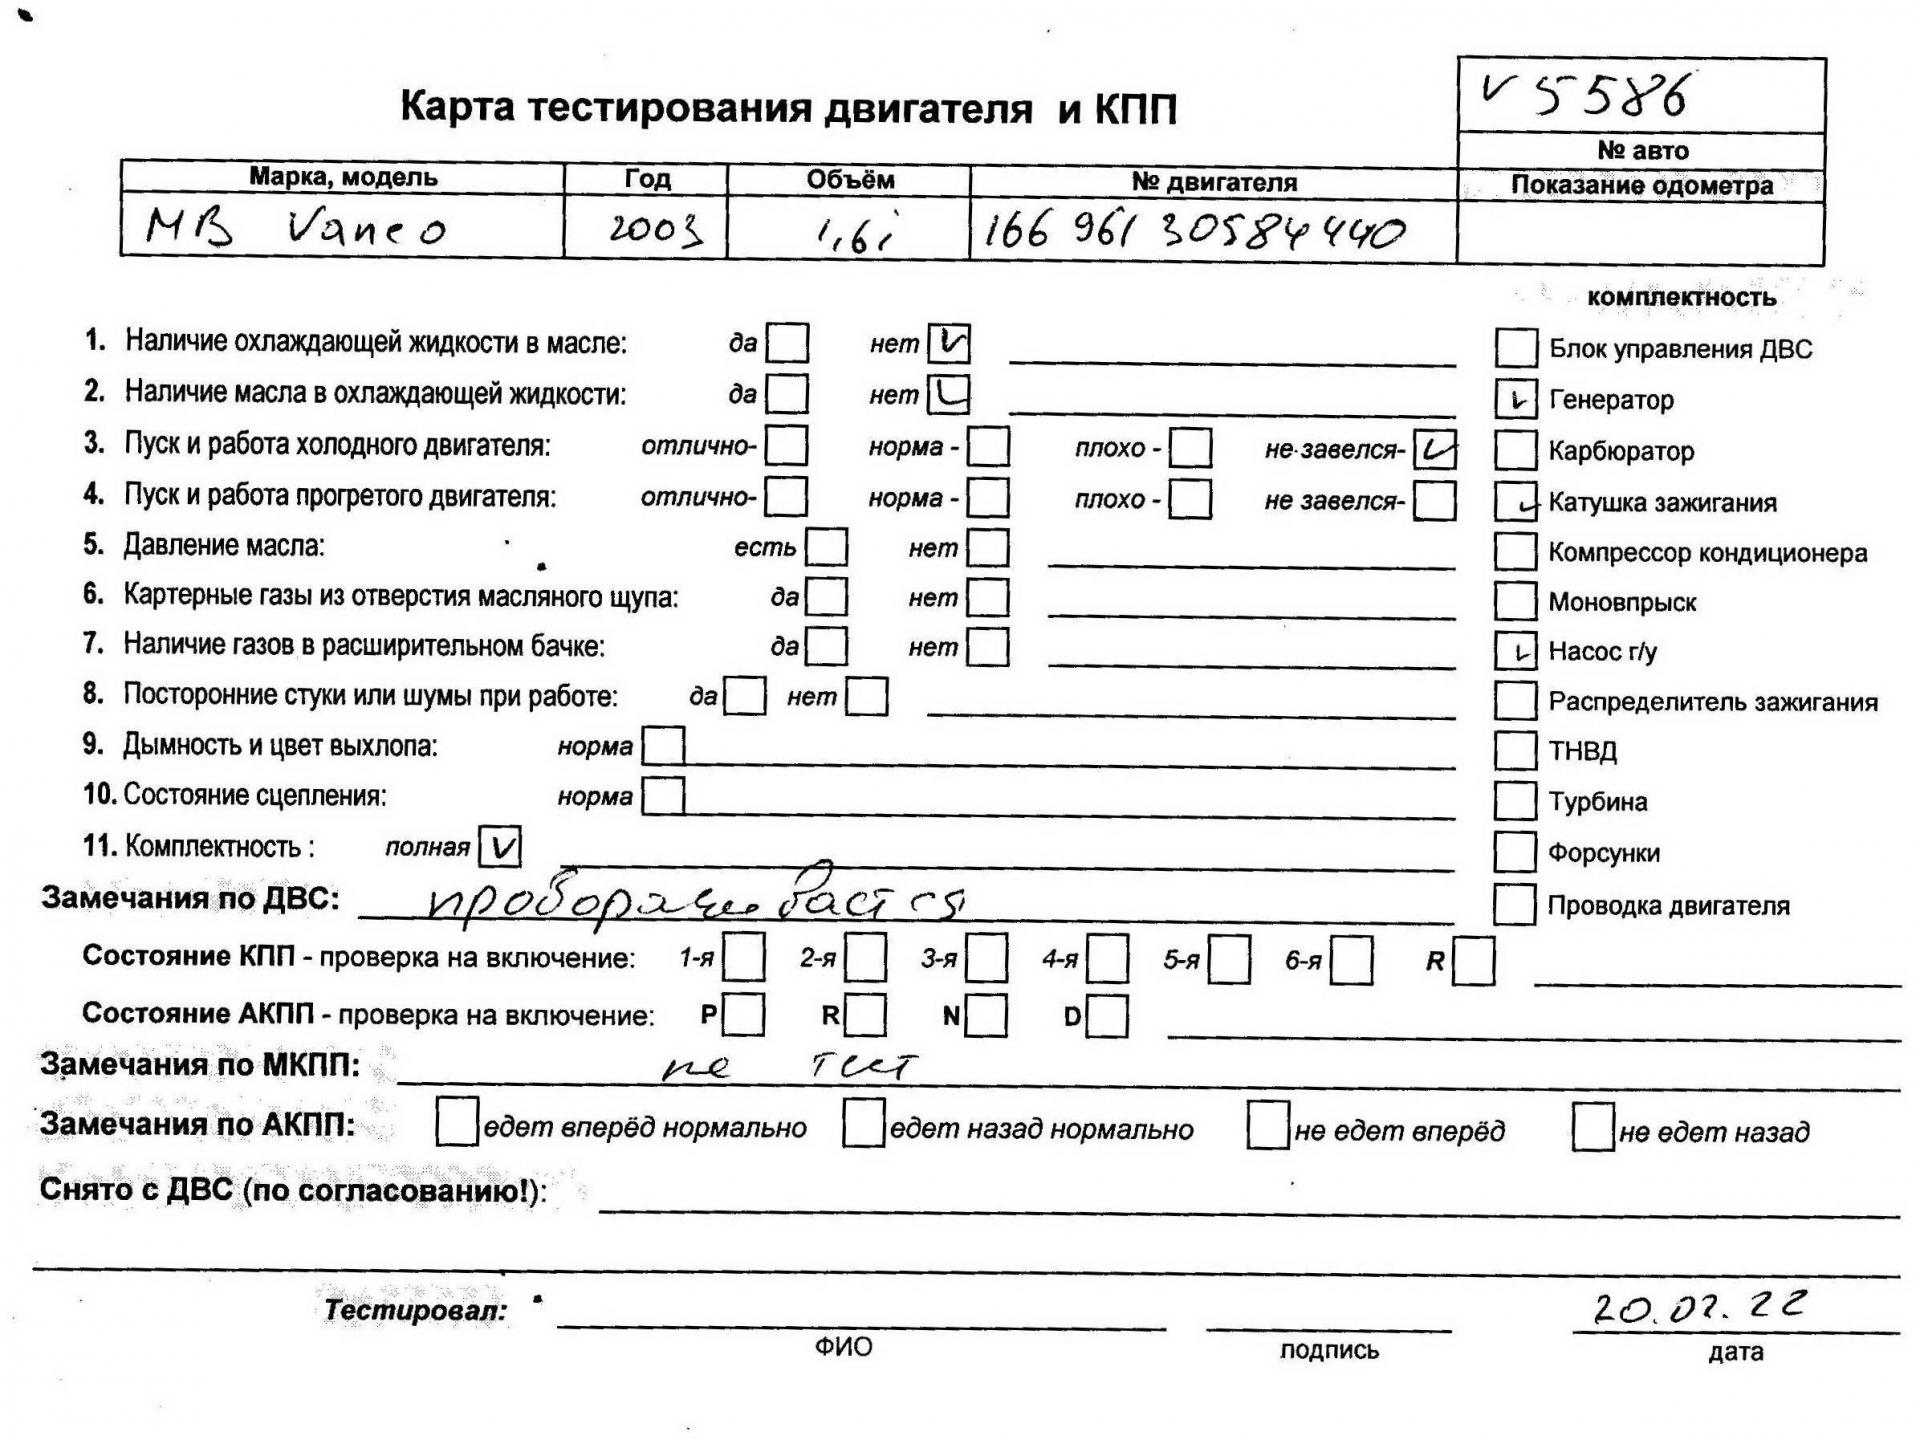 V5586
Карта тестирования двигателя и КПП
№ авто
Марка, модель Год Объём № двигателя Показание одометра
MB Vaneo 2003 1,6i 166 961 30584440
комплектность
1. Наличие охлаждающей жидкости в масле: да нет Блок управления ДВС
2. Наличие масла в охлаждающей жидкости: да нет Генератор
3. Пуск и работа холодного двигателя: отлично- норма - плохо - не завелся- Карбюратор
4. Пуск и работа прогретого двигателя: отлично- норма - плохо - не завелся- Катушка зажигания
5. Давление масла: есть нет Компрессор кондиционера
6. Картерные газы из отверстия масляного щупа: да нет Моновпрыск
7. Наличие газов в расширительном бачке: да нет Насос г/у
8. Посторонние стуки или шумы при работе: да нет Распределитель зажигания
9. Дымность и цвет выхлопа: норма ТНВД
10. Состояние сцепления: норма Турбина
11. Комплектность : полная Форсунки
Замечания по ДВС: Проводка двигателя
Состояние КПП - проверка на включение: 1-я 2-я 3-я 4-я 5-я 6-я R
Состояние АКПП - проверка на включение: P R N D
Замечания по МКПП: не тест
Замечания по АКПП: едет вперёд нормально едет назад нормально не едет вперёд не едет назад
Снято с ДВС (по согласованию!):
Тестировал: 20.02.22
ФИО подпись дата